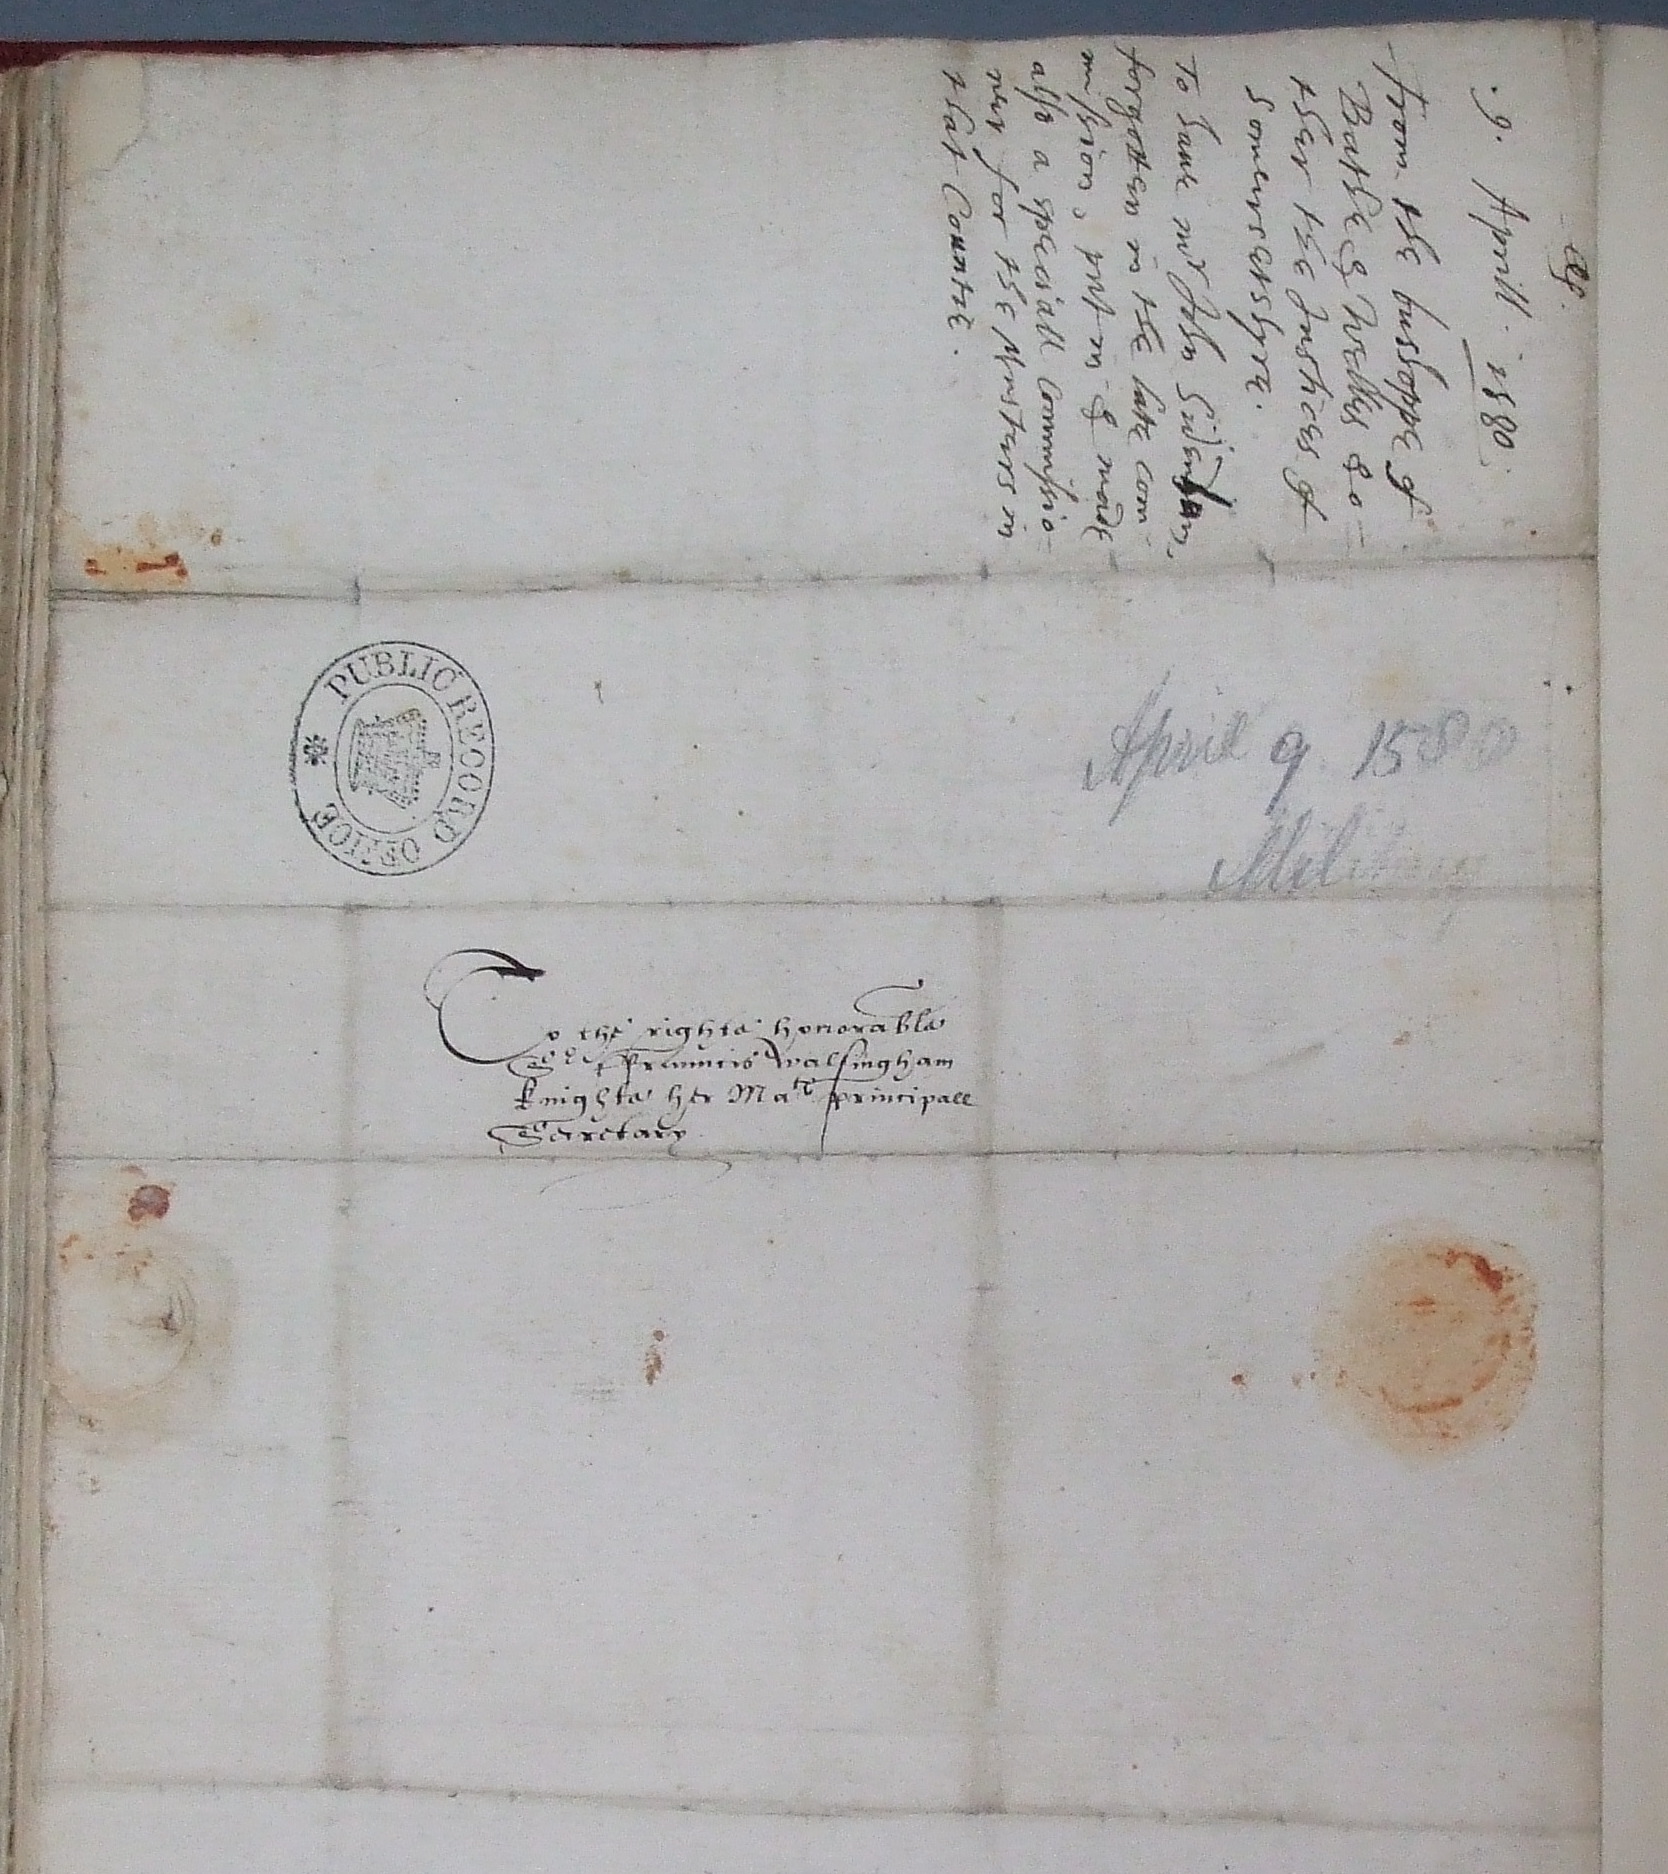 .9. Aprill. 1580.
From the busshoppe of
Bathe & Welles & o=
ther the Justices of
Somersetshyre.
To have mr John Sidenham,
forgotten in the late com=
mission, put in & made
also a speciall Commissio=
ner for the Musters in
that Countie.
PUBLIC RECORD OFFICE
April 9. 1580
Military
To the righte honorable
Sr Frauncis Walsingham
knighte her Matᵉ principall
Secretary